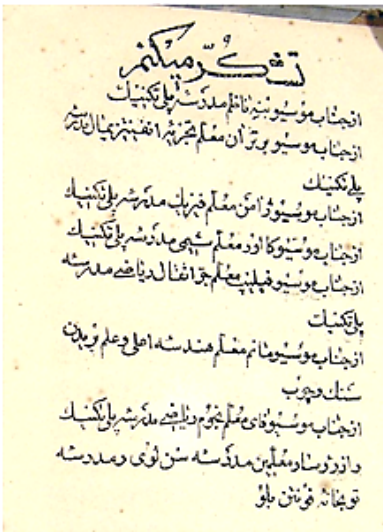 تشکّر میکنم
از جناب موسیو بنه ناظم مدرسۀ پلی تکنیک
از جناب موسیو برتران معلم تجزیۀ انفینتزیمال مدرسۀ
پلی تکنیک
از جناب موسیو ژامن معلم فیزیک مدرسۀ پلی تکنیک
از جناب موسیو کااور معلم شیمی مدرسۀ پلی تکنیک
از جناب موسیو فیلیپ معلم جرّ اثقال ریاضی مدرسه
پلی تکنیک
از جناب موسیو مانم معلم هندسۀ اصلی و علم بریدن
سنک و چوب
از جناب موسیو فای معلم نجوم و ریاضی مدرسۀ پلی تکنیک
و از رؤسا و معلمین مدرسه سن لوی و مدرسه
توپخانه فونتن بلو